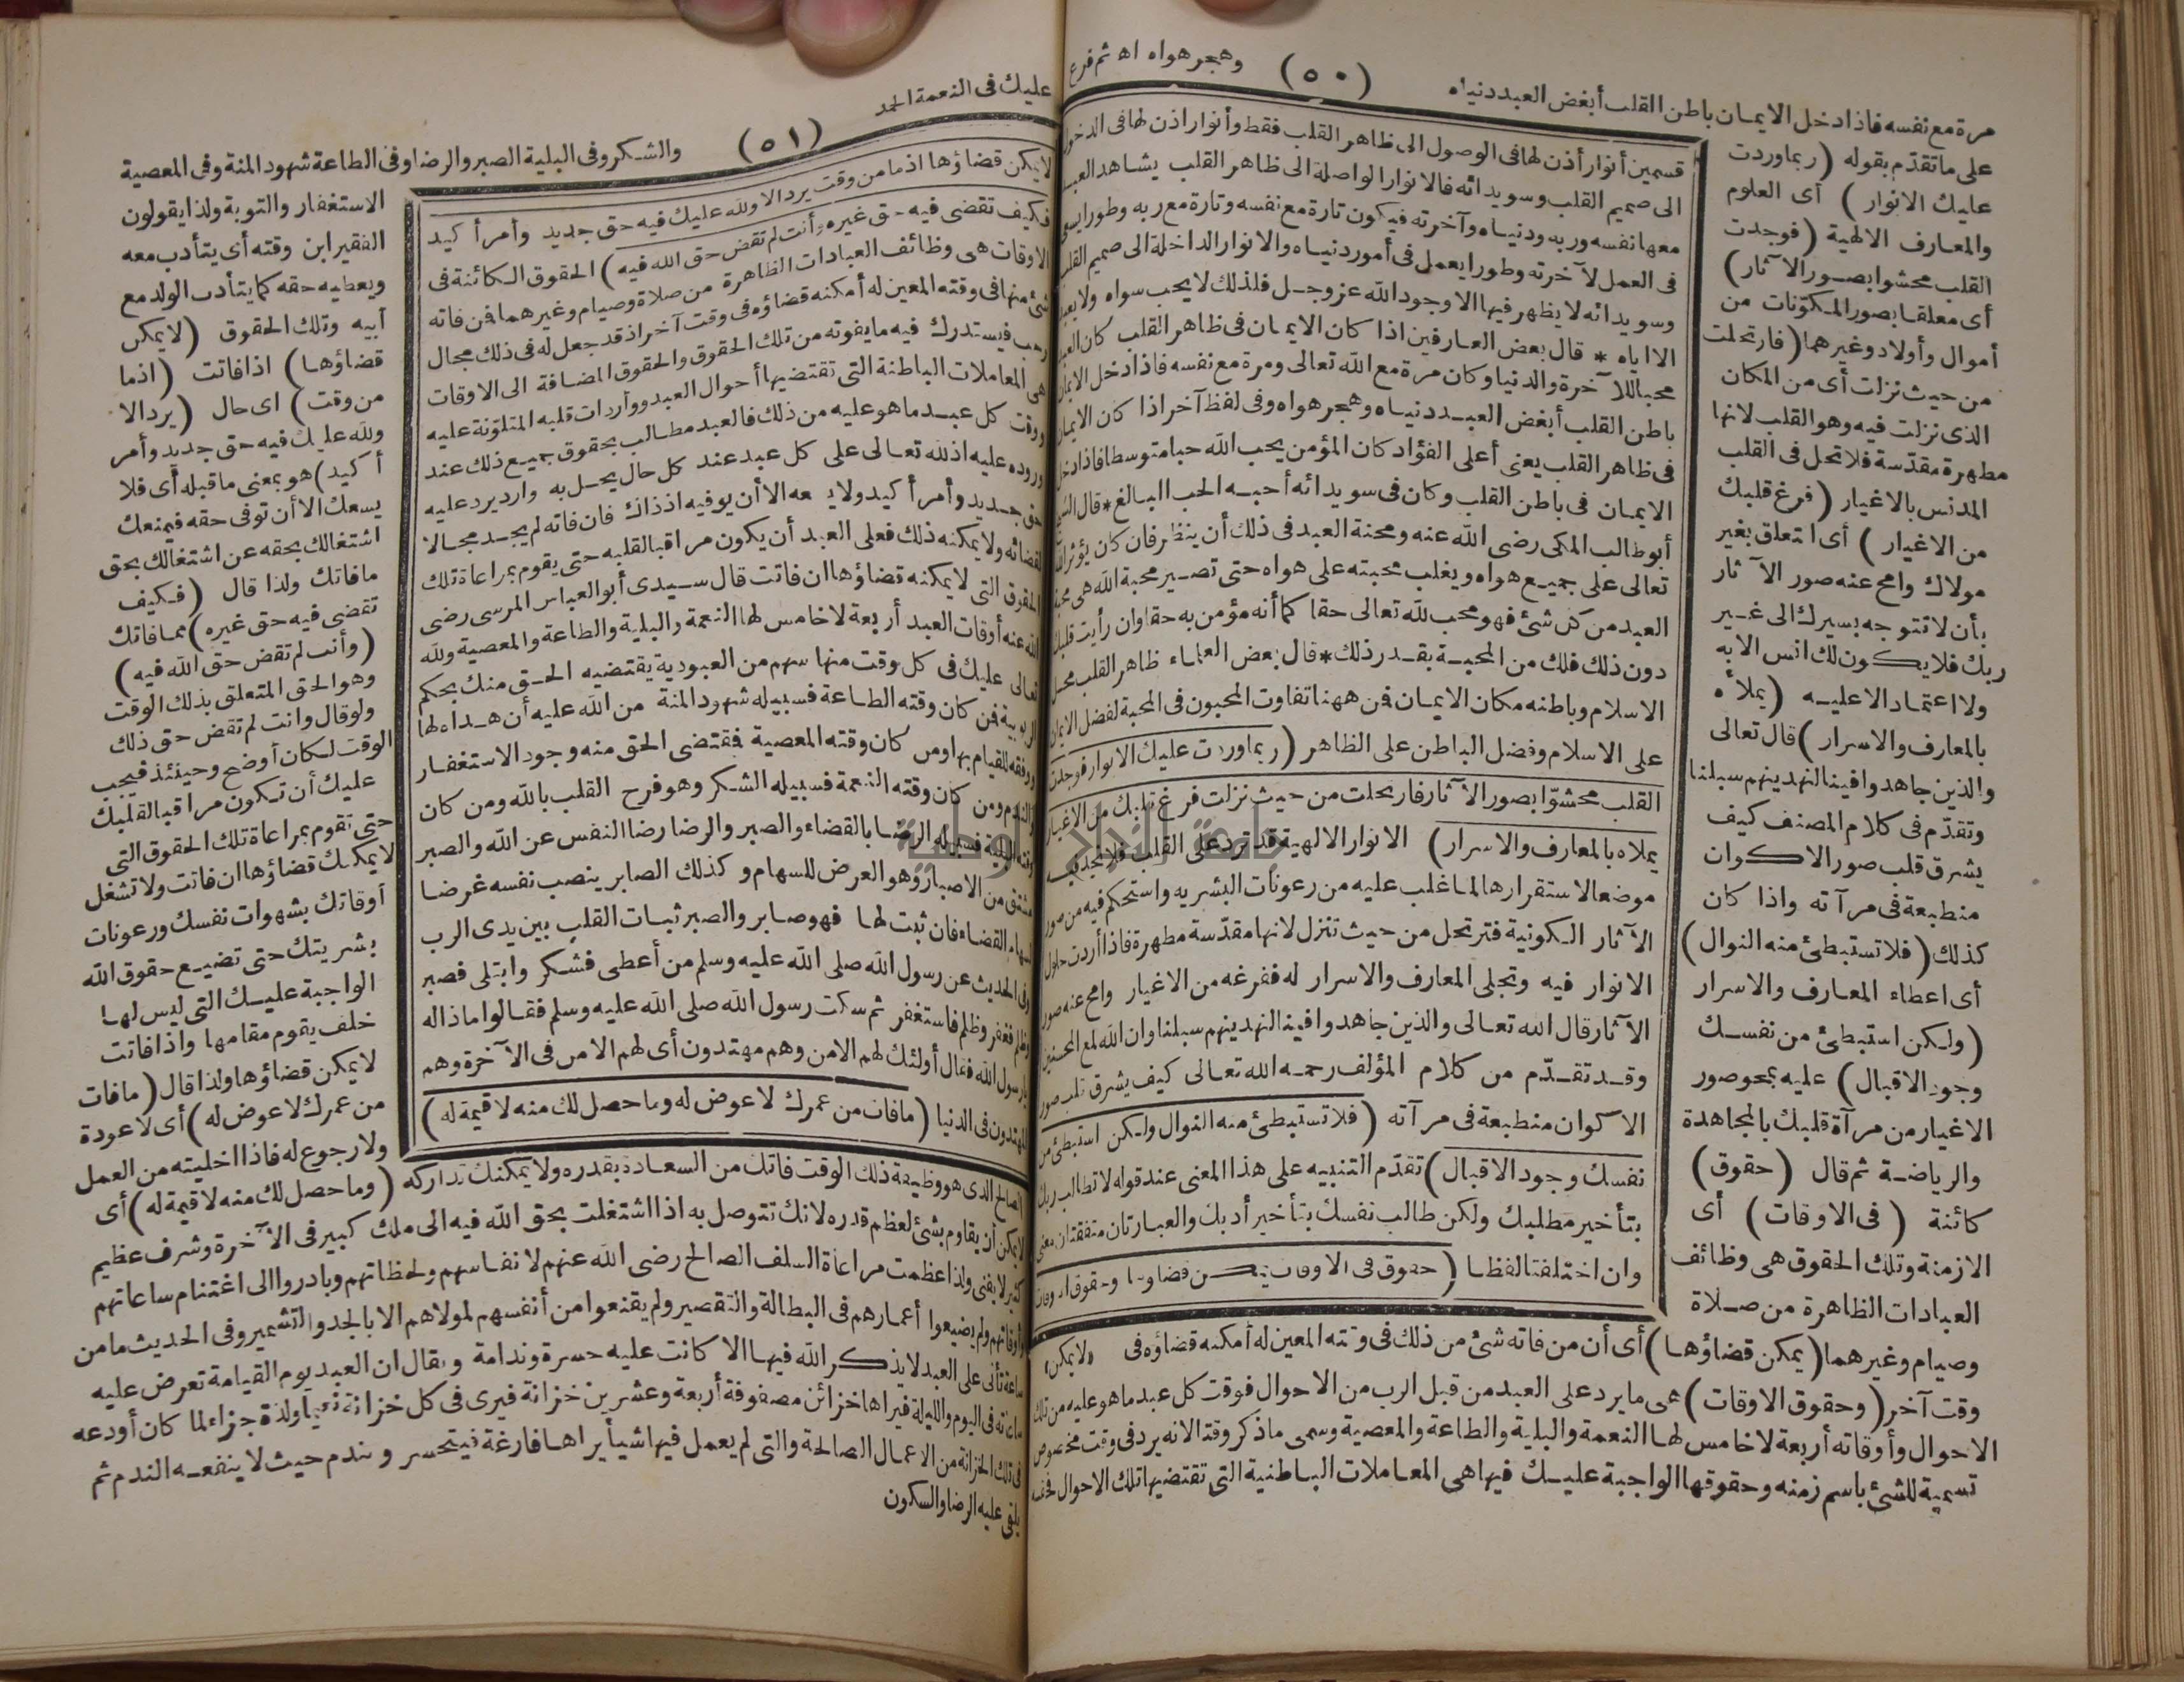 مرة مع نفسه فاذا دخل الايمان باطن القلب أبغض العبد دنياه (٥٠) وهجر هواه اه ثم فرع
على ما تقدّم بقوله (ربما وردت
عليك الانوار) أى العلوم
والمعارف الالهية (فوجدت
القلب محشوا بصور الآثار)
أى معلقا بصور المكوّنات من
أموال وأولاد وغيرهما (فارتحلت
من حيث نزلت أى من المكان
الذى نزلت فيه وهو القلب لانها
مطهرة مقدّسة فلا تحل فى القلب
المدنس بالاغيار (فرغ قلبك
من الاغيار) أى التعلق بغير
مولاك وامح عنه صور الآثار
بأن لا تتوجه بسيرك الى غير
ربك فلا يكون لك انس الا به
ولا اعتماد الا عليه (يملأه
بالمعارف والاسرار) قال تعالى
والذين جاهدوا فينا لنهدينهم سبلنا
وتقدّم فى كلام المصنف كيف
يشرق قلب صور الاكوان
منطبعة فى مرآته واذا كان
كذلك (فلا تستبطئ منه النوال)
أى اعطاء المعارف والاسرار
(ولكن استبطئ من نفسك
وجود الاقبال) عليه بمحو صور
الاغيار من مرآة قلبك بالمجاهدة
والرياضة ثم قال (حقوق)
كائنة (فى الاوقات) أى
الازمنة وتلك الحقوق هى وظائف
العبادات الظاهرة من صلاة
قسمين أنوار أذن لها فى الوصول الى ظاهر القلب فقط وأنوار اذن لها فى الدخول
الى صميم القلب وسويدائه فالانوار الواصلة الى ظاهر القلب يشاهد العبد
معها نفسه وربه ودنياه وآخرته فيكون تارة مع نفسه وتارة مع ربه وطورا يسعى
فى العمل لآخرته وطورا يعمل فى أمور دنياه والانوار الداخلة الى صميم القلب
وسويدائه لا يظهر فيها الا وجود الله عز وجل فلذلك لا يحب سواه ولا يعبد
الا اياه * قال بعض العارفين اذا كان الايمان فى ظاهر القلب كان العبد
محبا للآخرة والدنيا وكان مرة مع الله تعالى ومرة مع نفسه فاذا دخل الايمان
باطن القلب أبغض العبد دنياه وهجر هواه وفى لفظ آخر اذا كان الايمان
فى ظاهر القلب يعنى أعلى الفؤاد كان المؤمن يحب الله حبا متوسطا فاذا دخل
الايمان فى باطن القلب وكان فى سويدائه أحبه الحب البالغ * قال الشيخ
أبو طالب المكى رضى الله عنه ومحنة العبد فى ذلك أن ينظر فان كان يؤثر الله
تعالى على جميع هواه ويغلب محبته على هواه حتى تصير محبة الله هى محبة
العبد من كل شئ فهو محب لله تعالى حقا كما أنه مؤمن به حقا وان رأيت قلبك
دون ذلك فلك من المحبة بقدر ذلك * قال بعض العلماء ظاهر القلب محل
الاسلام وباطنه مكان الايمان فمن ههنا تفاوت المحبون فى المحبة لفضل الايمان
على الاسلام وفضل الباطن على الظاهر (ربما وردت عليك الانوار فوجدت
القلب محشوّا بصور الآثار فارتحلت من حيث نزلت فرغ قلبك من الاغيار
يملاه بالمعارف والاسرار) الانوار الالهية قد ترد على القلب فلا تجد فيه
موضعا لاستقرارها لما غلب عليه من رعونات البشريه واستحكم فيه من صور
الآثار الكونية فترتحل من حيث تنزل لانها مقدّسة مطهرة فاذا أردت حلول
الانوار فيه وتجلى المعارف والاسرار له ففرغه من الاغيار وامح عنه صور
الآثار قال الله تعالى والذين جاهدوا فينا لنهدينهم سبلنا وان الله لمع المحسنين
وقد تقدّم من كلام المؤلف رحمه الله تعالى كيف يشرق قلب صور
الاكوان منطبعة فى مرآته (فلا تستبطئ منه النوال ولكن استبطئ من
نفسك وجود الاقبال) تقدّم التنبيه على هذا المعنى عند قوله لا تطالب ربك
بتأخير مطلبك ولكن طالب نفسك بتأخير أدبك والعبارتان متفقتان معنى
وان اختلفتا لفظا (حقوق فى الاوقات يمكن قضاؤها وحقوق الاوقات
وصيام وغيرهما (يمكن قضاؤها) أى أن من فاته شئ من ذلك فى وقته المعين له أمكنه قضاؤه فى «لا يمكن»
وقت آخر (وحقوق الاوقات) هى ما يرد على العبد من قبل الرب من الاحوال فوقت كل عبد ما هو عليه من تلك
الاحوال وأوقاته أربعة لا خامس لها النعمة والبلية والطاعة والمعصية وسمى ما ذكر وقتا لانه يرد فى وقت مخصوص
تسمية للشئ باسم زمنه وحقوقها الواجبة عليك فيها هى المعاملات الباطنية التى تقتضيها تلك الاحوال
عليك فى النعمة الحمد (٥١) والشكر وفى البلية الصبر والرضا وفى الطاعة شهود المنة وفى المعصية
لا يمكن قضاؤها اذ ما من وقت يرد الا ولله عليك فيه حق جديد وأمر أكيد
فكيف تقضى فيه حق غيره وأنت لم تقض حق الله فيه) الحقوق الكائنة فى
الاوقات هى وظائف العبادات الظاهرة من صلاة وصيام وغيرهما فمن فاته
شئ منها فى وقته المعين له أمكنه قضاؤه فى وقت آخر اذ قد جعل له فى ذلك مجال
رحب فيستدرك فيه ما يفوته من تلك الحقوق والحقوق المضافة الى الاوقات
هى المعاملات الباطنة التى تقتضيها أحوال العبد وواردات قلبه المتلوّنة عليه
ووقت كل عبد ما هو عليه من ذلك فالعبد مطالب بحقوق جميع ذلك عند
وروده عليه اذ لله تعالى على كل عبد عند كل حال يحل به وارد يرد عليه
حق جديد وأمر أكيد ولا يسعه الا أن يوفيه اذ ذاك فان فاته لم يجد مجالا
لقضائه ولا يمكنه ذلك فعلى العبد أن يكون مراقبا لقلبه حتى يقوم بمراعاة تلك
الحقوق التى لا يمكنه قضاؤها ان فاتت قال سيدى أبو العباس المرسى رضى
الله عنه أوقات العبد أربعة لا خامس لها النعمة والبلية والطاعة والمعصية ولله
تعالى عليك فى كل وقت منها سهم من العبودية يقتضيه الحق منك بحكم
الربوبية فمن كان وقته الطاعة فسبيله شهود المنة من الله عليه أن هداه لها
ووفقه للقيام بها ومن كان وقته المعصية فمقتضى الحق منه وجود الاستغفار
والندم ومن كان وقته النعمة فسبيله الشكر وهو فرح القلب بالله ومن كان
وقته البلية فسبيله الرضا بالقضاء والصبر والرضا رضا النفس عن الله والصبر
مشتق من الاصبار وهو الغرض للسهام وكذلك الصابر ينصب نفسه غرضا
لسهام القضاء فان ثبت لها فهو صابر والصبر ثبات القلب بين يدى الرب
وفى الحديث عن رسول الله صلى الله عليه وسلم من أعطى فشكر وابتلى فصبر
وظلم فغفر وظلم فاستغفر ثم سكت رسول الله صلى الله عليه وسلم فقالوا ماذا له
يا رسول الله فقال أولئك لهم الامن وهم مهتدون أى لهم الامن فى الآخرة وهم
المهتدون فى الدنيا (ما فات من عمرك لا عوض له وما حصل لك منه لا قيمة له)
الاستغفار والتوبة ولذا يقولون
الفقير ابن وقته أى يتأدب معه
ويعطيه حقه كما يتأدب الولد مع
أبيه وتلك الحقوق (لا يمكن
قضاؤها) اذا فاتت (اذ ما
من وقت) أى حال (يرد الا
ولله عليك فيه حق جديد وأمر
أكيد) هو بمعنى ما قبله أى فلا
يسعك الا أن توفى حقه فيمنعك
اشتغالك بحقه عن اشتغالك بحق
ما فاتك ولذا قال (فكيف
تقضى فيه حق غيره) مما فاتك
(وأنت لم تقض حق الله فيه)
وهو الحق المتعلق بذلك الوقت
ولو قال وانت لم تقض حق ذلك
الوقت لكان أوضح وحينئذ فيجب
عليك أن تكون مراقبا لقلبك
حتى تقوم بمراعاة تلك الحقوق التى
لا يمكنك قضاؤها ان فاتت ولا تشغل
أوقاتك بشهوات نفسك ورعونات
بشريتك حتى تضيع حقوق الله
الواجبة عليك التى ليس لها
خلف يقوم مقامها واذا فاتت
لا يمكن قضاؤها ولذا قال (ما فات
من عمرك لا عوض له) أى لا عودة
ولا رجوع له فاذا اخليته من العمل
الصالح الذى هو وظيفة ذلك الوقت فاتك من السعادة بقدره ولا يمكنك تداركه (وما حصل لك منه لا قيمة له) أى
لا يمكن أن يقاوم بشئ لعظم قدره لانك تتوصل به اذا اشتغلت بحق الله فيه الى ملك كبير فى الآخرة وشرف عظيم
كثير لا يفنى ولذا عظمت مراعاة السلف الصالح رضى الله عنهم لانفاسهم ولحظاتهم وبادروا الى اغتنام ساعاتهم
وأوقاتهم ولم يضيعوا أعمارهم فى البطالة والتقصير ولم يقنعوا من أنفسهم لمولاهم الا بالجد والتشمير وفى الحديث ما من
ساعة تأتى على العبد لا يذكر الله فيها الا كانت عليه حسرة وندامة ويقال ان العبد يوم القيامة تعرض عليه
ساعاته فى اليوم والليلة فيراها خزائن مصفوفة أربعة وعشرين خزانة فيرى فى كل خزانة نعيما ولذة جزاء لما كان أودعه
فى تلك الخزانة من الاعمال الصالحة والتى لم يعمل فيها شيأ يراها فارغة فيتحسر ويندم حيث لا ينفعه الندم ثم
يلقى عليه الرضا والسكون
جامعة النجاح الوطنية